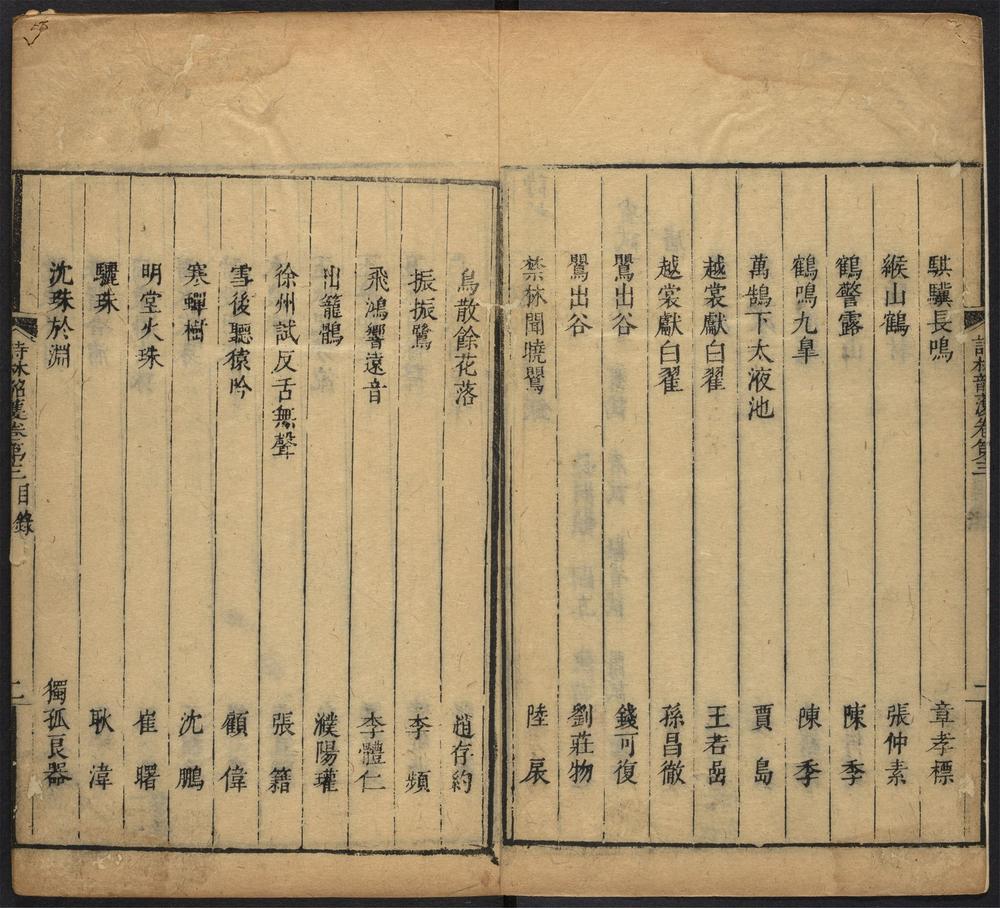 騏驥長鳴 章孝標
緱山鶴 張仲素
鶴警露 陳季
鶴鳴九臯 陳季
萬鵠下太液池 賈島
越裳獻白翟 王若嵒
越裳獻白翟 孫昌徹
鸎出谷 錢可復
鸎出谷 劉莊物
禁林聞曉鸎 陸扆
鳥散餘花落 趙存約
振振鷺 李頻
飛鴻響遠音 李體仁
出籠鶻 濮陽瓘
徐州試反舌無聲 張籍
雪後聽猿吟 顧偉
寒蟬樹 沈鵬
明堂火珠 崔曙
驪珠 耿湋
沈珠於淵 獨孤良器
詩林韶濩卷第三目錄 二